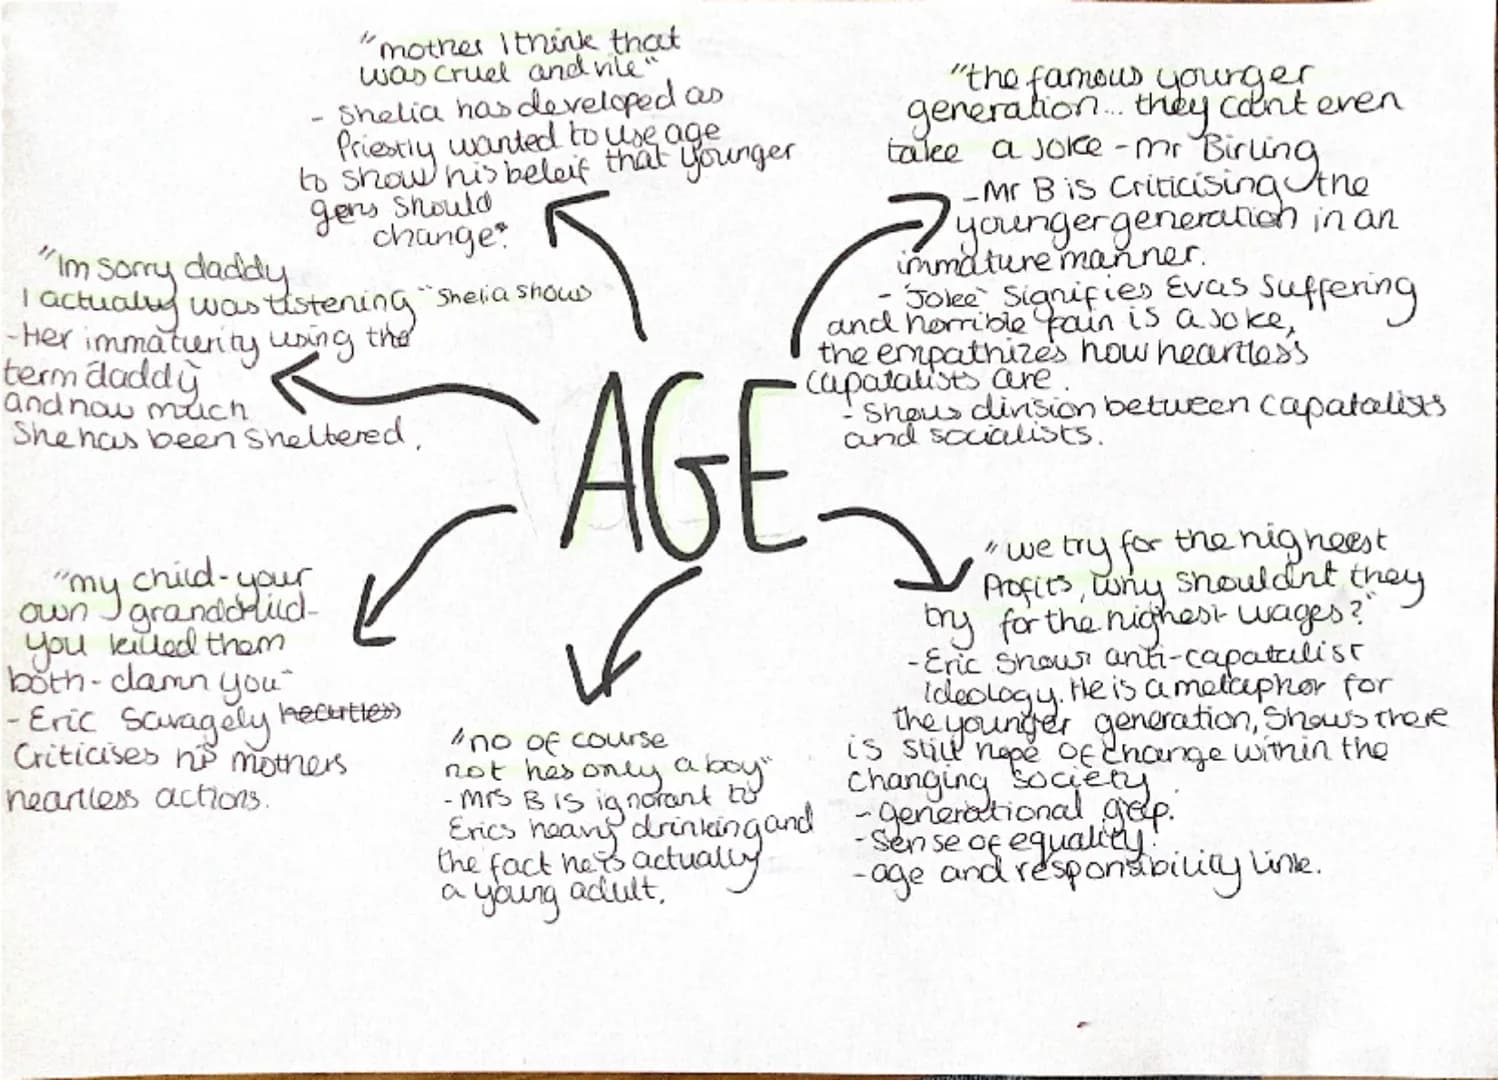 "mother I think that
was cruel and vile"
- Shelia has developed as
Priestly wanted to use age
to show his beleif that younger
gens should
change.
"the famous younger
generation... they cant even
take a joke - mr Birling
- Mr B is criticising the
younger generation in an
immature manner.
- "Joke" signifies Evas suffering
and horrible pain is a joke,
the empathizes how heartless
capatalists are.
- Shows division between capatalists
and socialists.
"Im sorry daddy
I actually was listening" Shelia shows
- Her immaturity using the
term daddy
and how much
She has been sheltered.
AGE
"my child - your
own grandchild -
you killed them
both - damn you"
- Eric Savagely heartless
Criticises his mothers
heartless actions.
"no of course
not hes only a boy"
- Mrs B is ignorant to
Erics heavy drinking and
the fact he is actually
a young adult.
"we try for the highest
Profits, why shouldnt they
try for the highest wages?"
- Eric Shows anti-capatalist
ideology. He is a metaphor for
the younger generation, Shows there
is still hope of change within the
changing society.
- generational gap.
- Sense of equality.
- age and responsibility link.